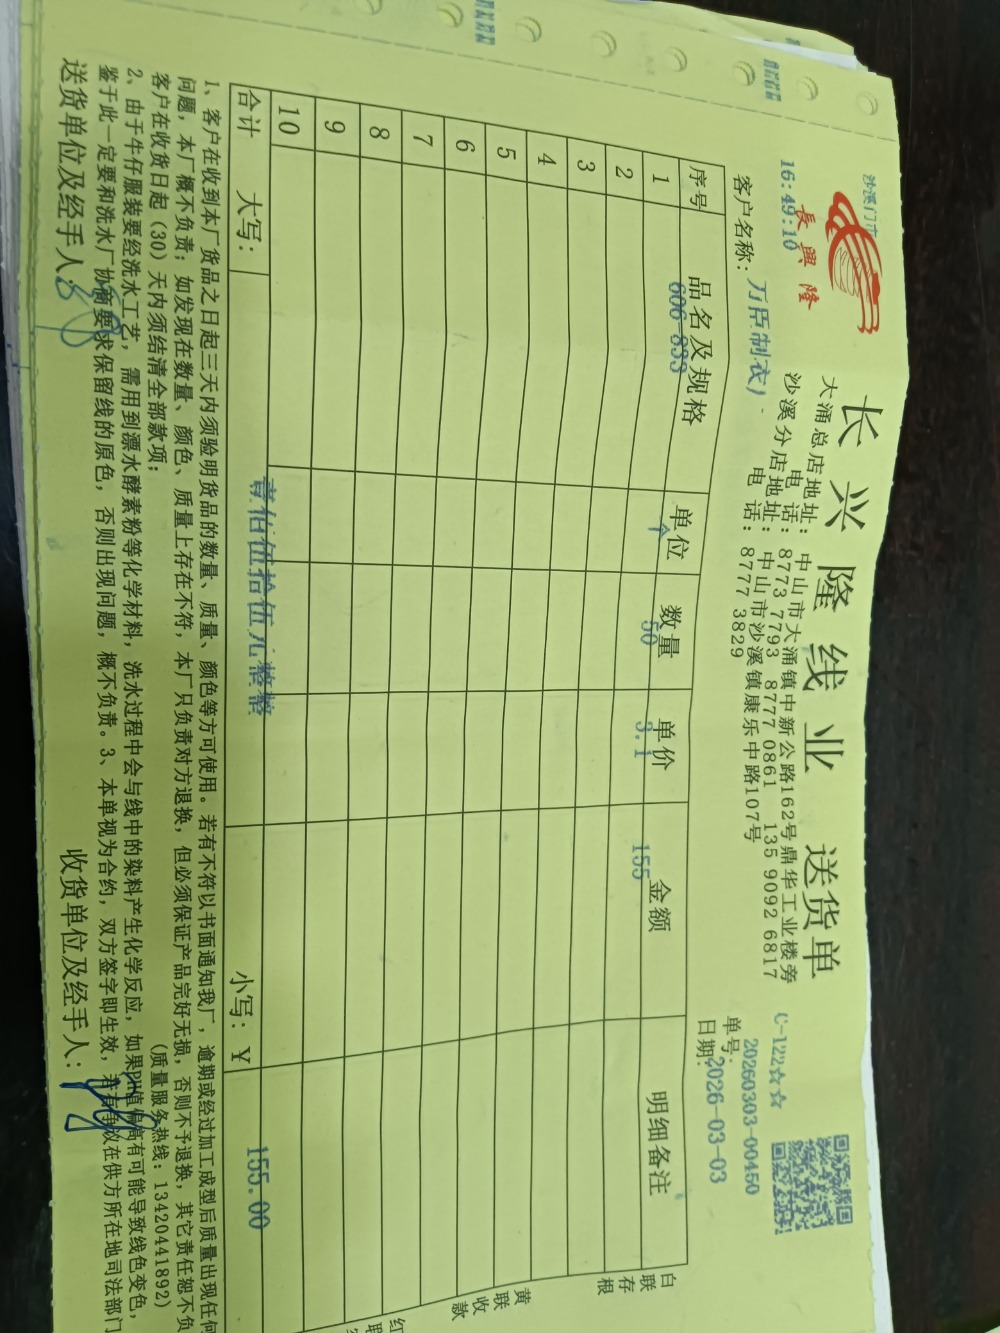 沙溪门市
16:49:10
長興隆
长兴隆线业 送货单
大涌总店地址: 中山市大涌镇中新公路162号鼎华工业楼旁
电 话: 8773 7793 8777 0861 135 9092 6817
沙溪分店地址: 中山市沙溪镇康乐中路107号
电 话: 8777 3829
C-122☆☆
单号: 20260303-00450
日期: 2026-03-03
客户名称: 万臣制衣)
序号 品名及规格 单位 数量 单价 金额 明细备注
1 606-833 个 50 3.1 155
2
3
4
5
6
7
8
9
10
合计 大写: 壹佰伍拾伍元整整 小写: ¥ 155.00
白联存根
黄联收款
红联
1、客户在收到本厂货品之日起三天内须验明货品的数量、质量、颜色等方可使用。若有不符以书面通知我厂,逾期或经过加工成型后质量出现任何
问题,本厂概不负责;如发现在数量、颜色、质量上存在不符,本厂只负责对方退换,但必须保证产品完好无损,否则不予退换,其它责任恕不负
客户在收货日起(30)天内须结清全部款项; (质量服务热线: 13420441892)
2、由于牛仔服装要经洗水工艺,需用到漂水酵素粉等化学材料,洗水过程中会与线中的染料产生化学反应,如果PH值偏高有可能导致线色变色,
鉴于此一定要和洗水厂协商要求保留线的原色,否则出现问题,概不负责。3、本单视为合约,双方签字即生效,若有争议在供方所在地司法部门
送货单位及经手人: 收货单位及经手人: